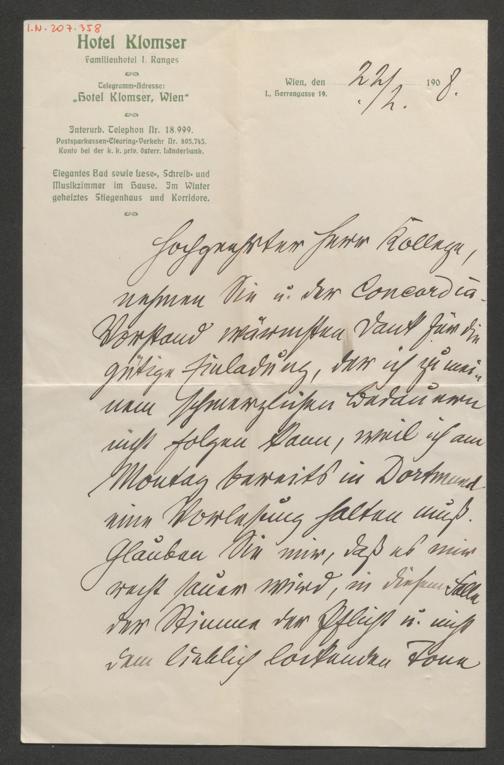 I.N. 207.358
Hotel Klomser
Familienhotel I. Ranges
Telegramm-Adresse:
„Hotel Klomser, Wien“
Interurb. Telephon Nr. 18.999.
Postsparkassen-Clearing-Verkehr Nr. 805.745.
Konto bei der k. k. priv. österr. Länderbank.
Elegantes Bad sowie Lese-, Schreib- und
Musikzimmer im Hause. Im Winter
geheiztes Stiegenhaus und Korridore.
Wien, den 22/2. 1908.
I., Herrengasse 19.
Hochgeehrter Herr Kollege,
nehmen Sie u. der Concordia-
Vorstand wärmsten Dank für die
gütige Einladung, der ich zu mei-
nem schmerzlichen Bedauern
nicht folgen kann, weil ich am
Montag bereits in Dortmund
eine Vorlesung halten muß.
Glauben Sie mir, daß es mir
recht sauer wird, in diesem Falle
der Stimme der Pflicht u. nicht
dem lieblich lockenden Tone